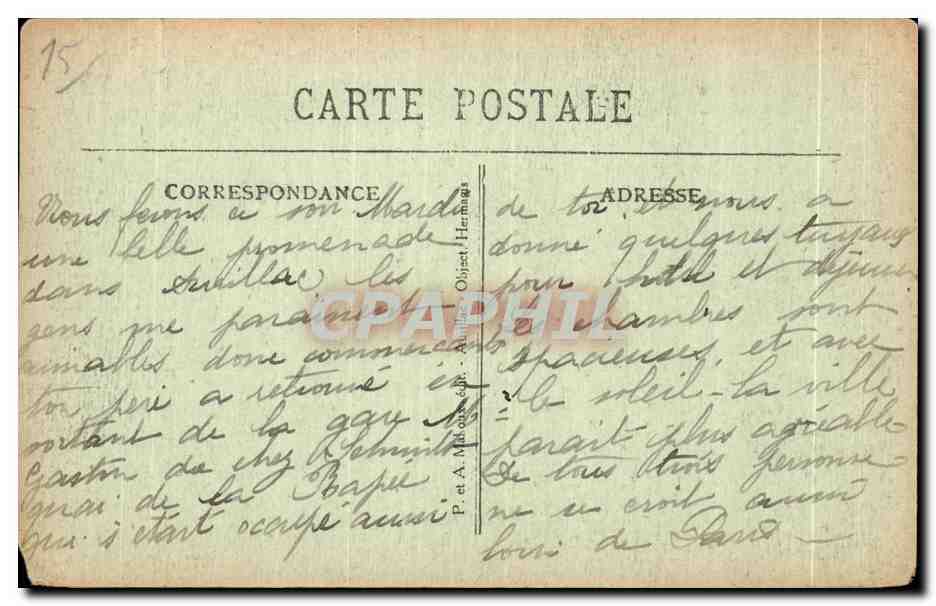 15
CARTE POSTALE
CORRESPONDANCE
Nous ferons ce soir Mardi
une belle promenade
dans Aurillac les
gens me paraissent
aimables donc commercants
ton père a retrouvé en
sortant de la gare Mr
Gaston de chez Schmitt
quai de la Rapée
qui s'était occupé aussi
P. et A. Malroux édit. - Aurillac - Object. Hermagis
ADRESSE
de toi et nous a
donné quelques tuyaux
pour hotel et déjeuner
les chambres sont
spacieuses, et avec
le soleil - la ville
parait plus agréable
De tous trois personne
ne se croit aussi
loin de Paris
CPAPHIL